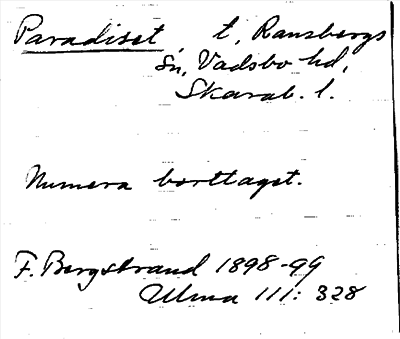 Paradiset, t, Ransbergs
Sn, Vadsbo hd,
Skarab. l.
Numera borttaget.
F. Bergstrand 1898-99
Ulma 111: 328